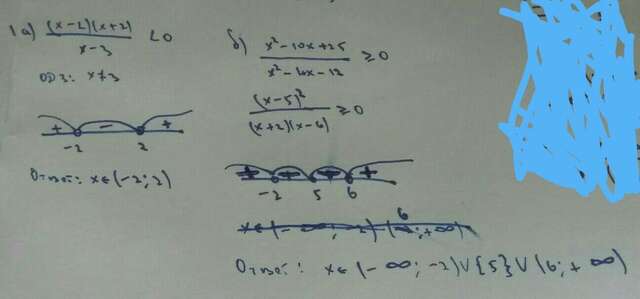 1 а) (x-2)(x+2) / x-3 < 0
ОДЗ: x≠3
+ - +
-2 2
Ответ: x∈(-2; 2)
б) x²-10x+25 / x²-4x-12 ≥ 0
(x-5)² / (x+2)(x-6) ≥ 0
-2 5 6
Ответ: x∈(-∞; -2)∨{5}∨(6; +∞)